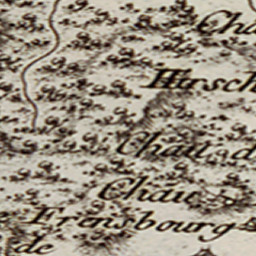 Cha
Hirsch
Chau d
Chau
Frensbourg
de